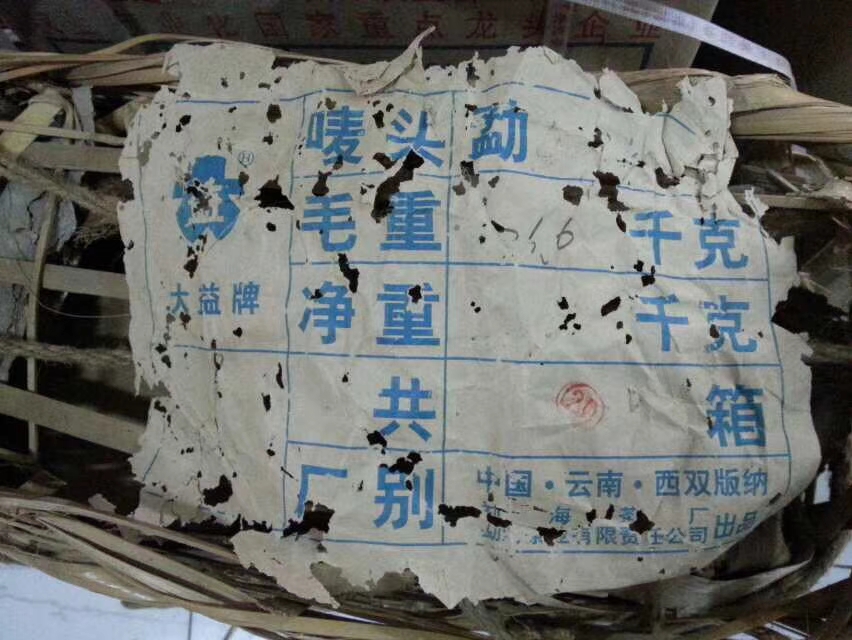 国家重点龙头企业
唛头 勐
毛重 26 千克
大益牌
净重 千克
共 箱
厂别
中国·云南·西双版纳
海茶厂
有限责任公司 出品